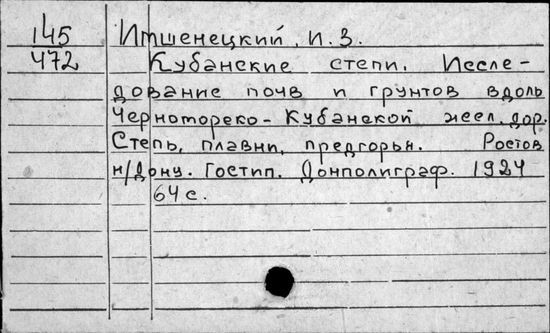 145 Имшенецкий, И. З.
472 Кубанские степи. Иссле-
дование почв и грунтов вдоль
Черноморско-Кубанской жел. дор.
Степь, плавни, предгорья. Ростов
н/Дону. Гостип. Донполиграф. 1924
64 с.